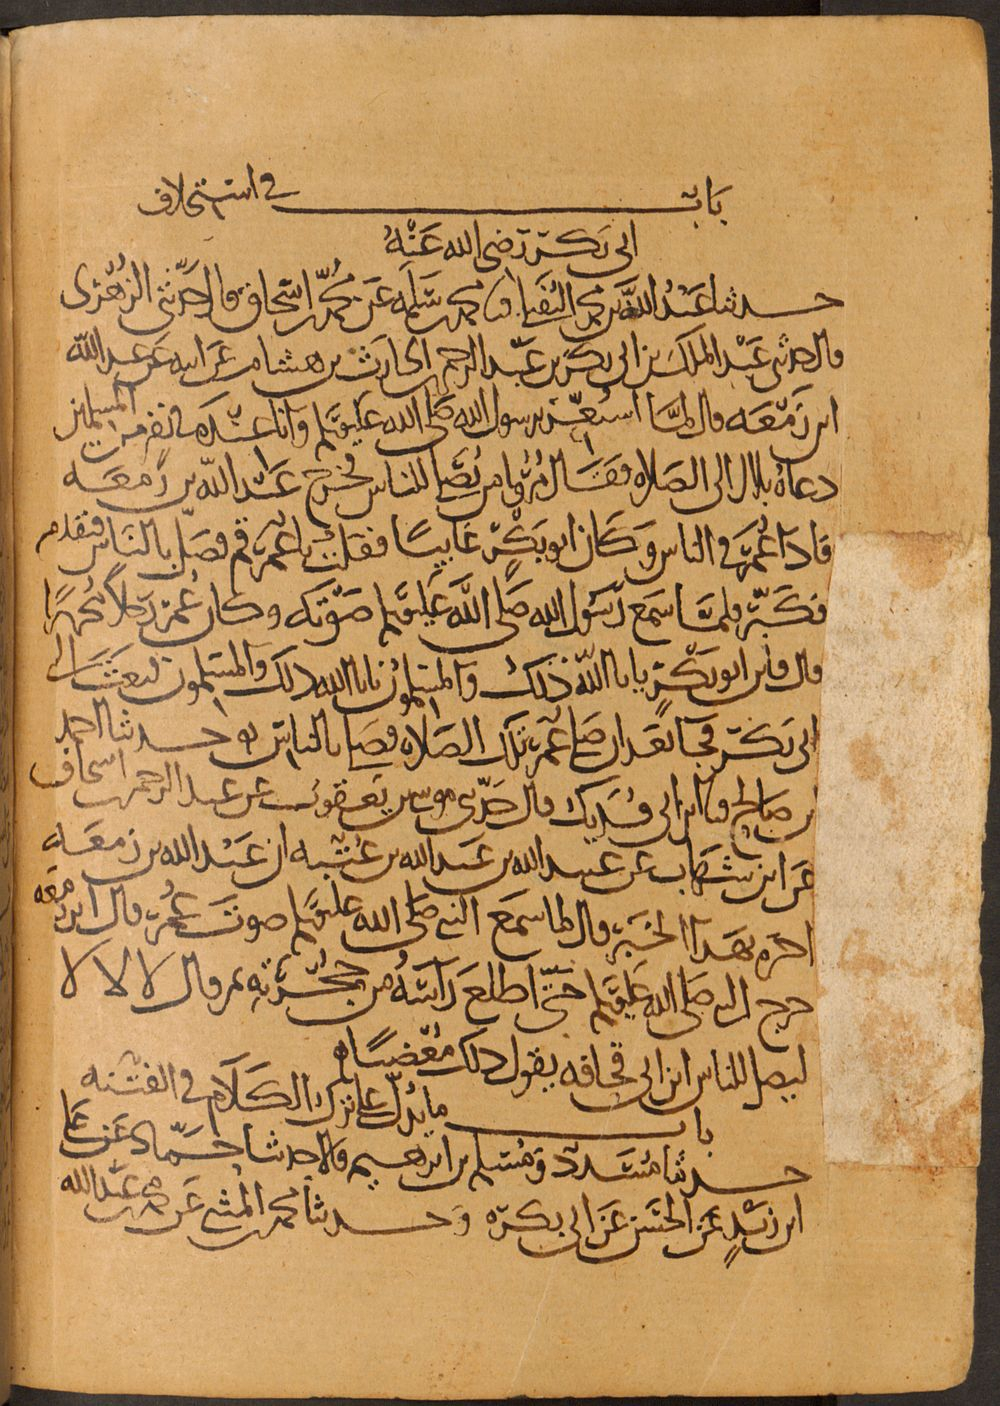 باب في استخلاف
ابى بكر رضى الله عنه
حدثنا عبد الله بن محمد النفيلي نا محمد بن سلمه عن محمد بن اسحاق قال حدثني الزهرى
قال حدثني عبد الملك بن ابى بكر بن عبد الرحمن بن الحارث بن هشام عن ابيه عن عبد الله
ابن زمعه قال لما استعز برسول الله صلى الله عليه وسلم وانا عنده في نفر من المسلمين
دعاه بلال الى الصلاه فقال مروا من يصلي للناس فخرج عبد الله بن زمعه
فاذا عمر في الناس وكان ابو بكر غايبا فقلت يا عمر قم فصل بالناس فتقدم
فكبر فلما سمع رسول الله صلى الله عليه وسلم صوته وكان عمر رجلا مجهرا
قال فاين ابو بكر يابا الله ذلك والمسلمون يابا الله ذلك والمسلمون فبعث الى
ابى بكر فجا بعد ان صلى عمر تلك الصلاه فصلى بالناس حدثنا احمد
بن صالح نا ابن ابى فديك قال حدثني موسى بن يعقوب عن عبد الرحمن بن اسحاق
عن ابن شهاب عن عبيد الله بن عبد الله بن عتبه ان عبد الله بن زمعه
اخبره بهذا الخبر قال لما سمع النبي صلى الله عليه وسلم صوت عمر قال ابن زمعه
خرج النبي صلى الله عليه وسلم حتى اطلع راسه من حجرته ثم قال لا لا لا
ليصل للناس ابن ابى قحافه يقول ذلك مغضبا
باب ما يدل على ترك الكلام في الفتنه
حدثنا مسدد ومسلم بن ابرهيم قالا حدثنا حماد عن علي
ابن زيد عن الحسن عن ابى بكره وحدثنا محمد بن المثنى عن محمد بن عبد الله